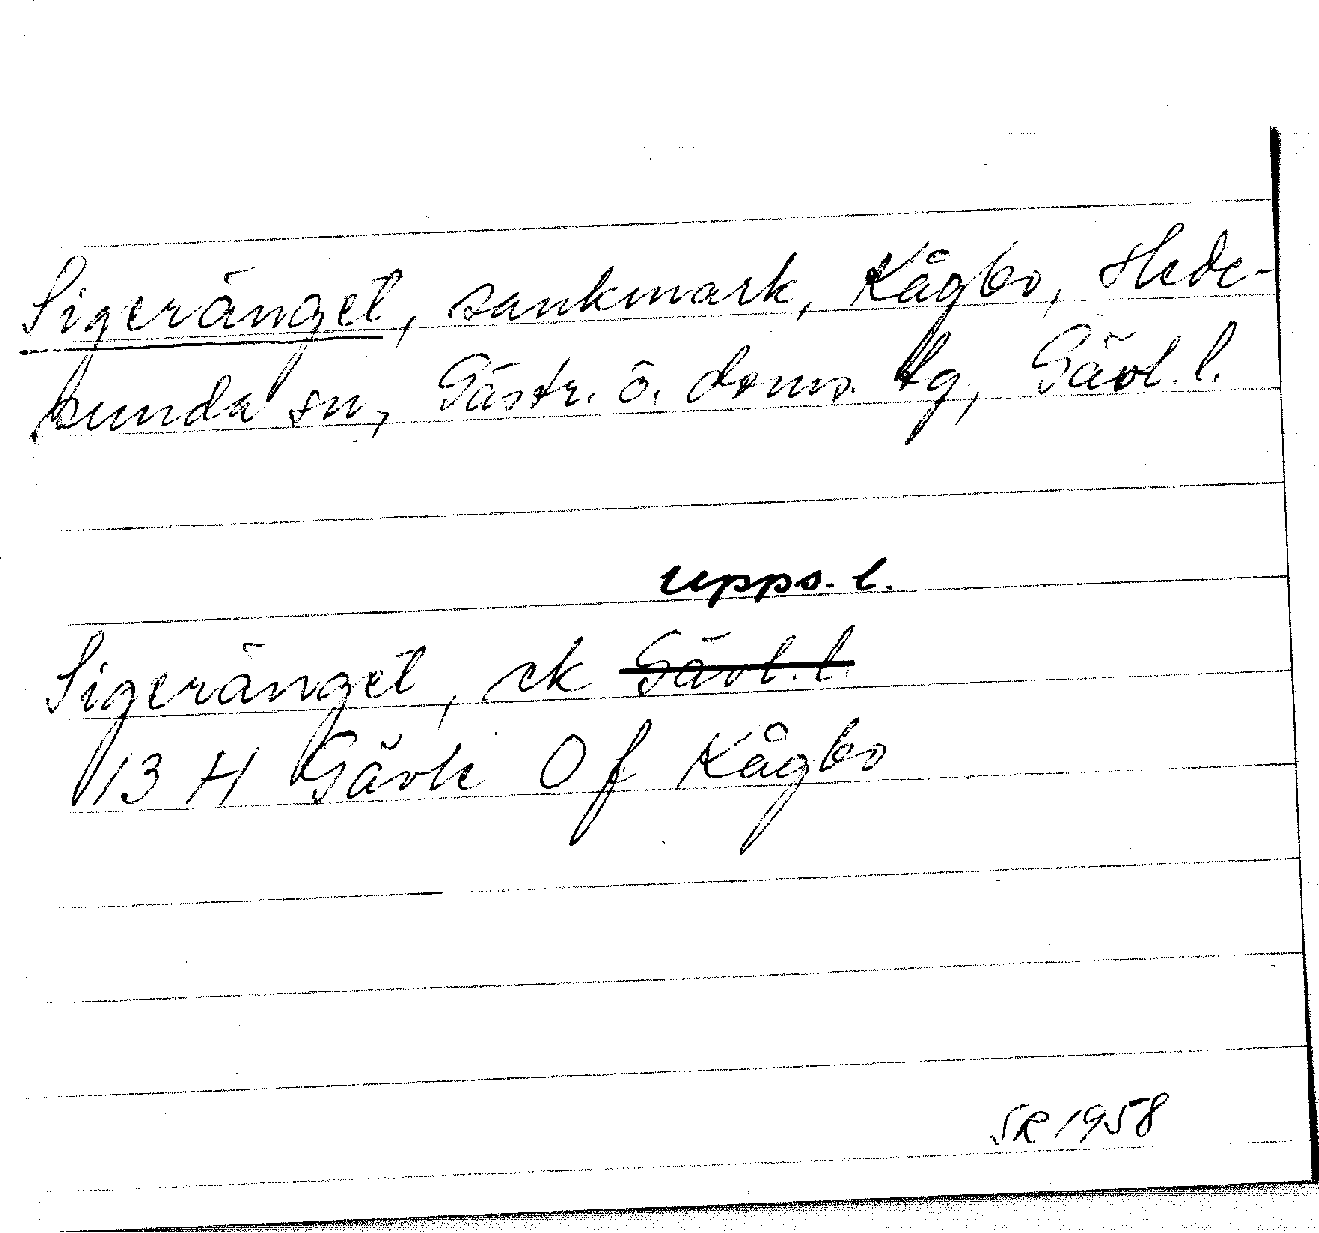 Sigeränget, sankmark, Kågbo, Hede-
sunda sn, Gästr. ö. doms. tg, Gävl. l.
Upps. l.
Sigeränget, ek Gävl. l.
13 H Gävle O f Kågbo
SR 1958